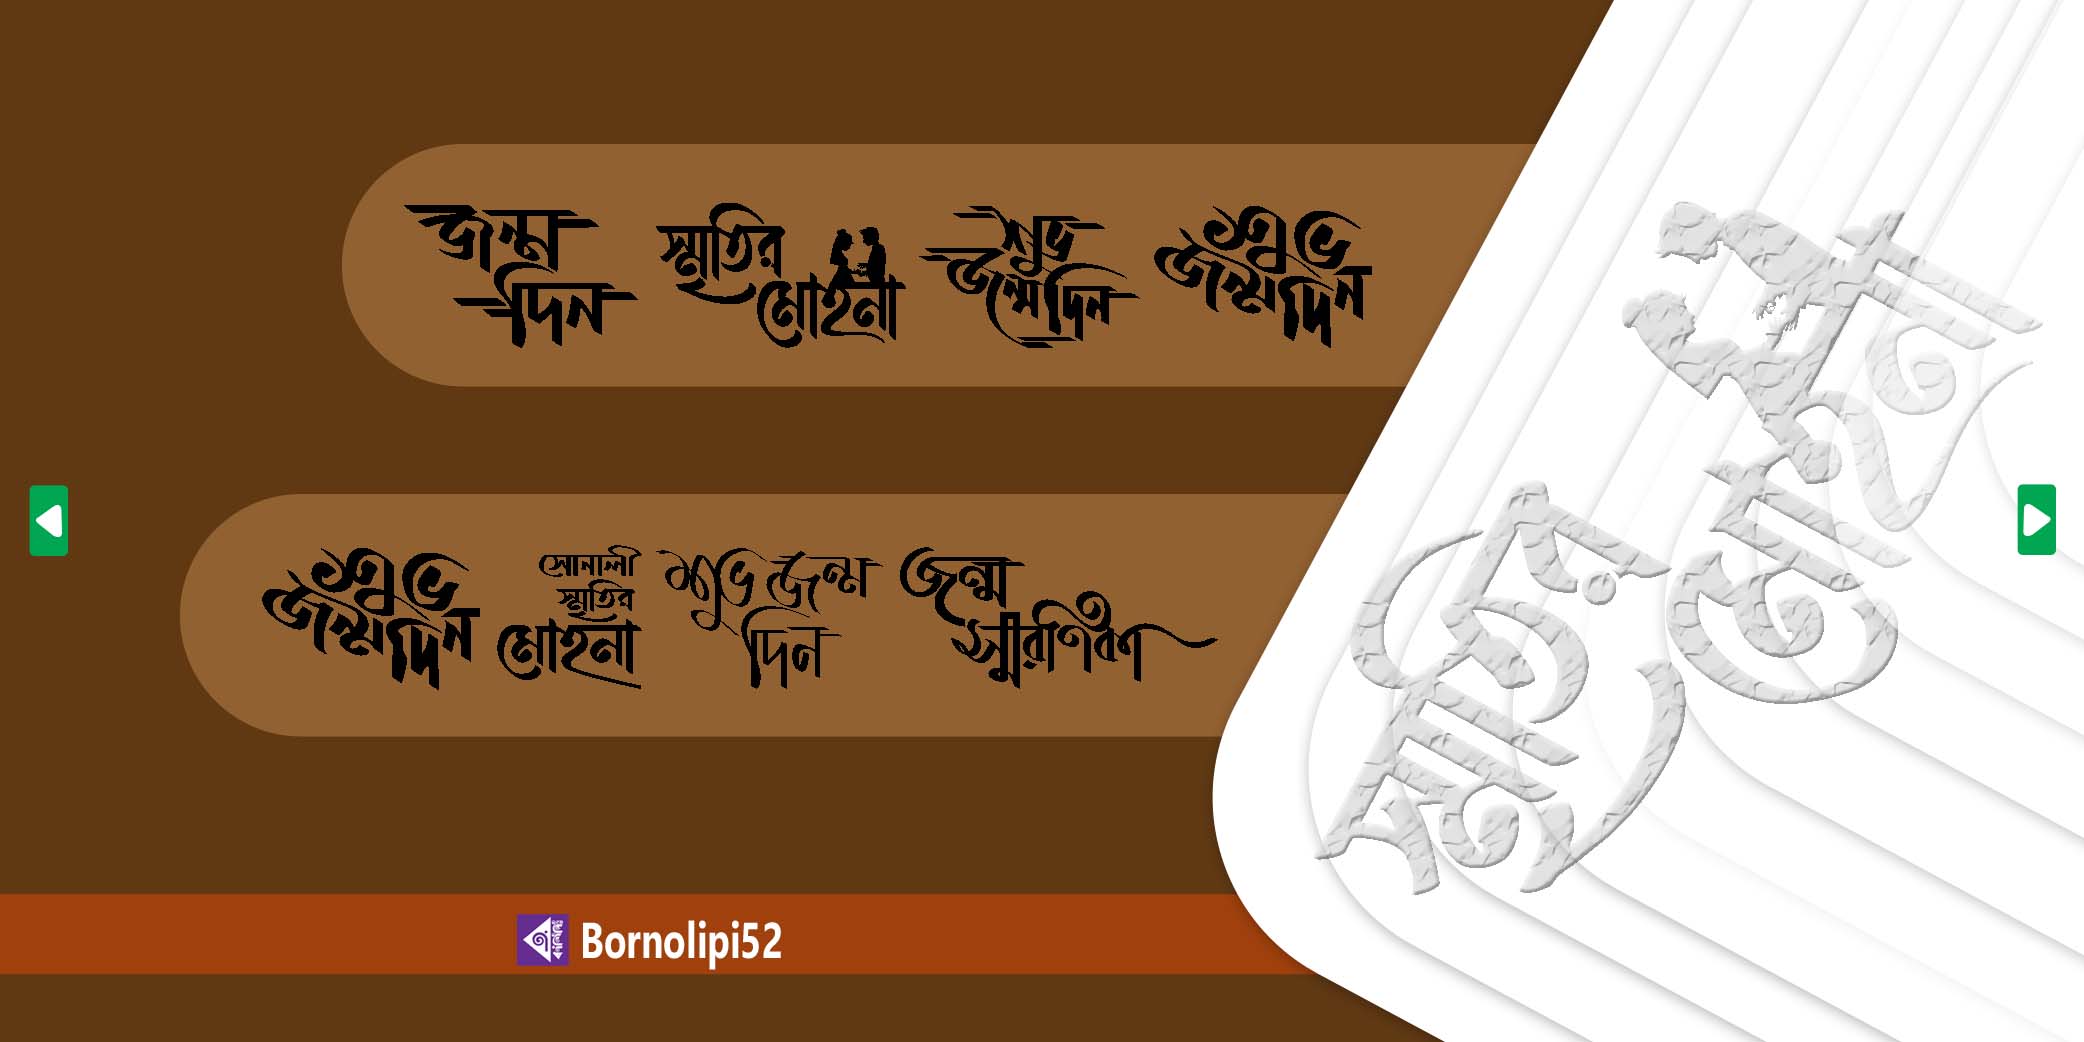 জন্ম
দিন
স্মৃতির
মোহনা
শুভ
জন্মদিন
শুভ
জন্মদিন
শুভ
জন্মদিন
সোনালী
স্মৃতির
মোহনা
শুভ জন্ম
দিন
জন্ম
স্মৃতির
মোহনা
Bornolipi52